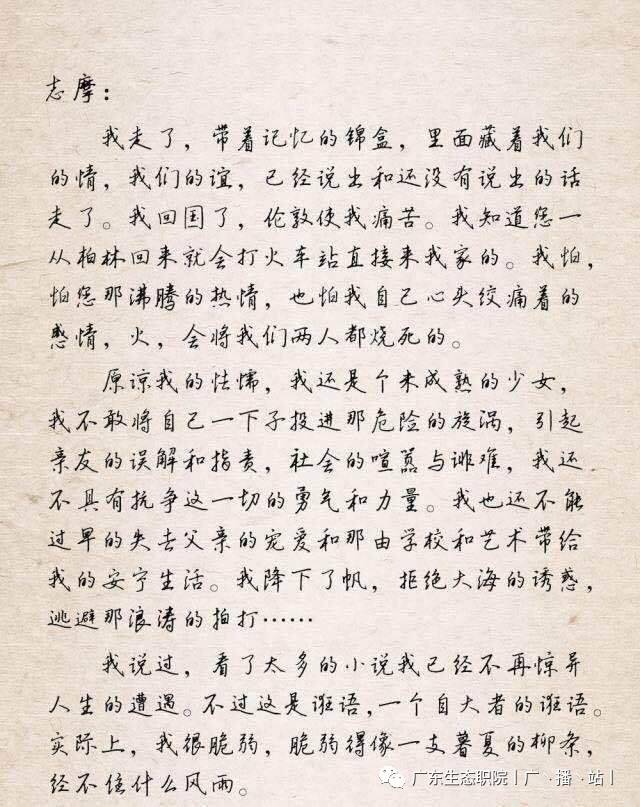 志摩：
我走了，带着记忆的锦盒，里面藏着我们
的情，我们的谊，已经说出和还没有说出的话
走了。我回国了，伦敦使我痛苦。我知道您一
从柏林回来就会打火车站直接来我家的。我怕，
怕您那沸腾的热情，也怕我自己心头绞痛着的
感情，火，会将我们两人都烧死的。
原谅我的怯懦，我还是个未成熟的少女，
我不敢将自己一下子投进那危险的旋涡，引起
亲友的误解和指责，社会的喧嚣与诽难，我还
不具有抗争这一切的勇气和力量。我也还不能
过早的失去父亲的宠爱和那由学校和艺术带给
我的安宁生活。我降下了帆，拒绝大海的诱惑，
逃避那浪涛的拍打……
我说过，看了太多的小说我已经不再惊异
人生的遭遇。不过这是诳语，一个自大者的诳语。
实际上，我很脆弱，脆弱得像一支暮夏的柳条，
经不住什么风雨。
广东生态职院丨广·播·站丨